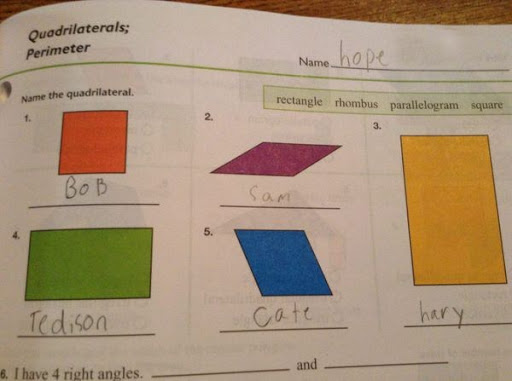 Quadrilaterals;
Perimeter
Name hope
Name the quadrilateral.
rectangle rhombus parallelogram square
1.
2.
3.
BoB
Sam
4.
5.
Tedison
Cate
hary
6. I have 4 right angles. and